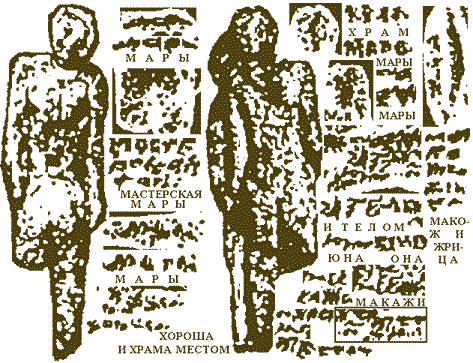 МАРЫ
МАСТЕРСКАЯ
МАРЫ
МАРЫ
ХОРОША
И ХРАМА МЕСТОМ
ХРАМ
МАРЫ
МАРЫ
И ТЕЛОМ
ЮНА ОНА
МАКАЖИ
МАКО-
Ж И
ЖРИ-
ЦА